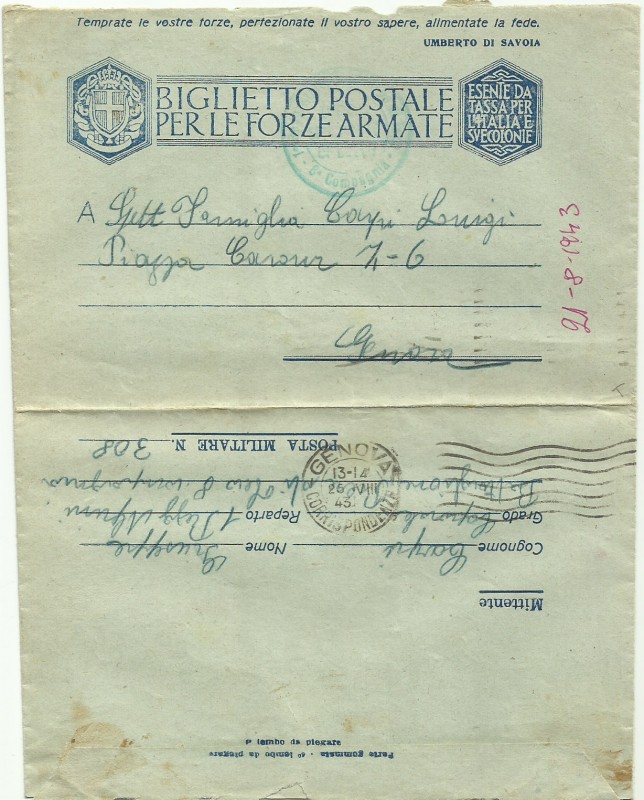 Temprate le vostre forze, perfezionate il vostro sapere, alimentate la fede.
UMBERTO DI SAVOIA
BIGLIETTO POSTALE
PER LE FORZE ARMATE
ESENTE DA
TASSA PER
L'ITALIA E
SVE COLONIE
8ª Compagnia
A Spett Famiglia Carpi Luigi
Piazza Cavour 7-6
Genova
21-8-1943
GENOVA
13-14
25 VIII
43
CORRISPONDENZE
Mittente
Cognome Carpi Nome Giuseppe
Grado Caporale Reparto 1 Regg Alpini
8 compagnia
POSTA MILITARE N. 308
1º lembo da piegare
Parte gommata - 4º lembo da piegare